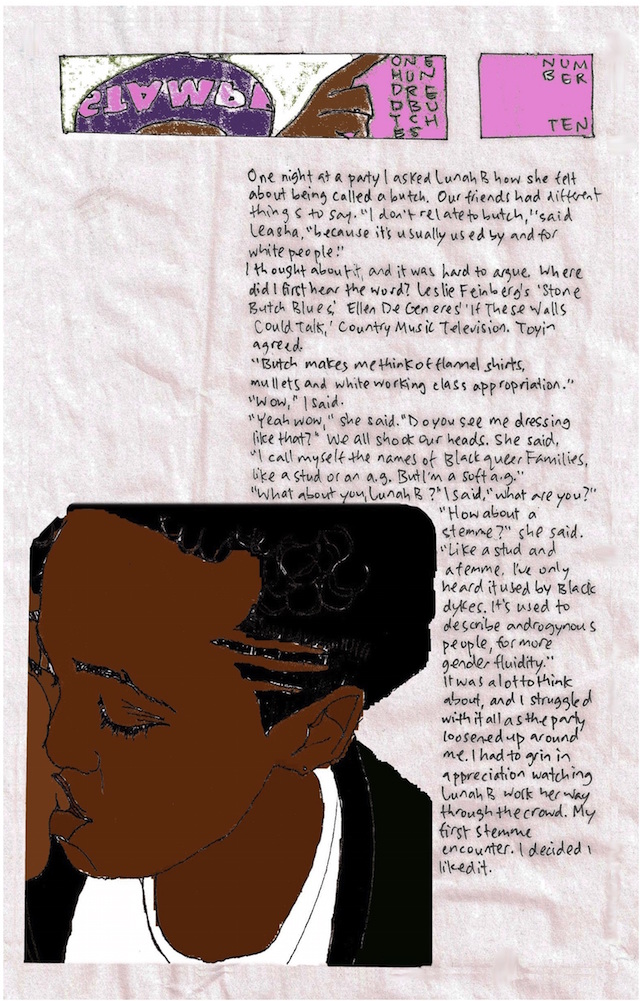 ONE
HUN
DRE
DBU
TCH
ES
NUM
BER
TEN
One night at a party I asked Lunah B how she felt
about being called a butch. Our friends had different
things to say. "I don't relate to butch," said
Leasha, "because it's usually used by and for
white people."
I thought about it, and it was hard to argue. Where
did I first hear the word? Leslie Feinberg's 'Stone
Butch Blues,' Ellen De Generes' 'If These Walls
Could Talk,' Country Music Television. Toyin
agreed.
"Butch makes me think of flannel shirts,
mullets and white working class appropriation."
"Wow," I said.
"Yeah wow," she said. "Do you see me dressing
like that?" We all shook our heads. She said,
"I call myself the names of Black queer Families,
like a stud or an a.g. But I'm a soft a.g."
"What about you, Lunah B?" I said, "what are you?"
"How about a
stemme?" she said.
"Like a stud and
a femme. I've only
heard it used by Black
dykes. It's used to
describe androgynous
people, for more
gender fluidity."
It was a lot to think
about, and I struggled
with it all as the party
loosened up around
me. I had to grin in
appreciation watching
Lunah B work her way
through the crowd. My
first stemme
encounter. I decided I
liked it.